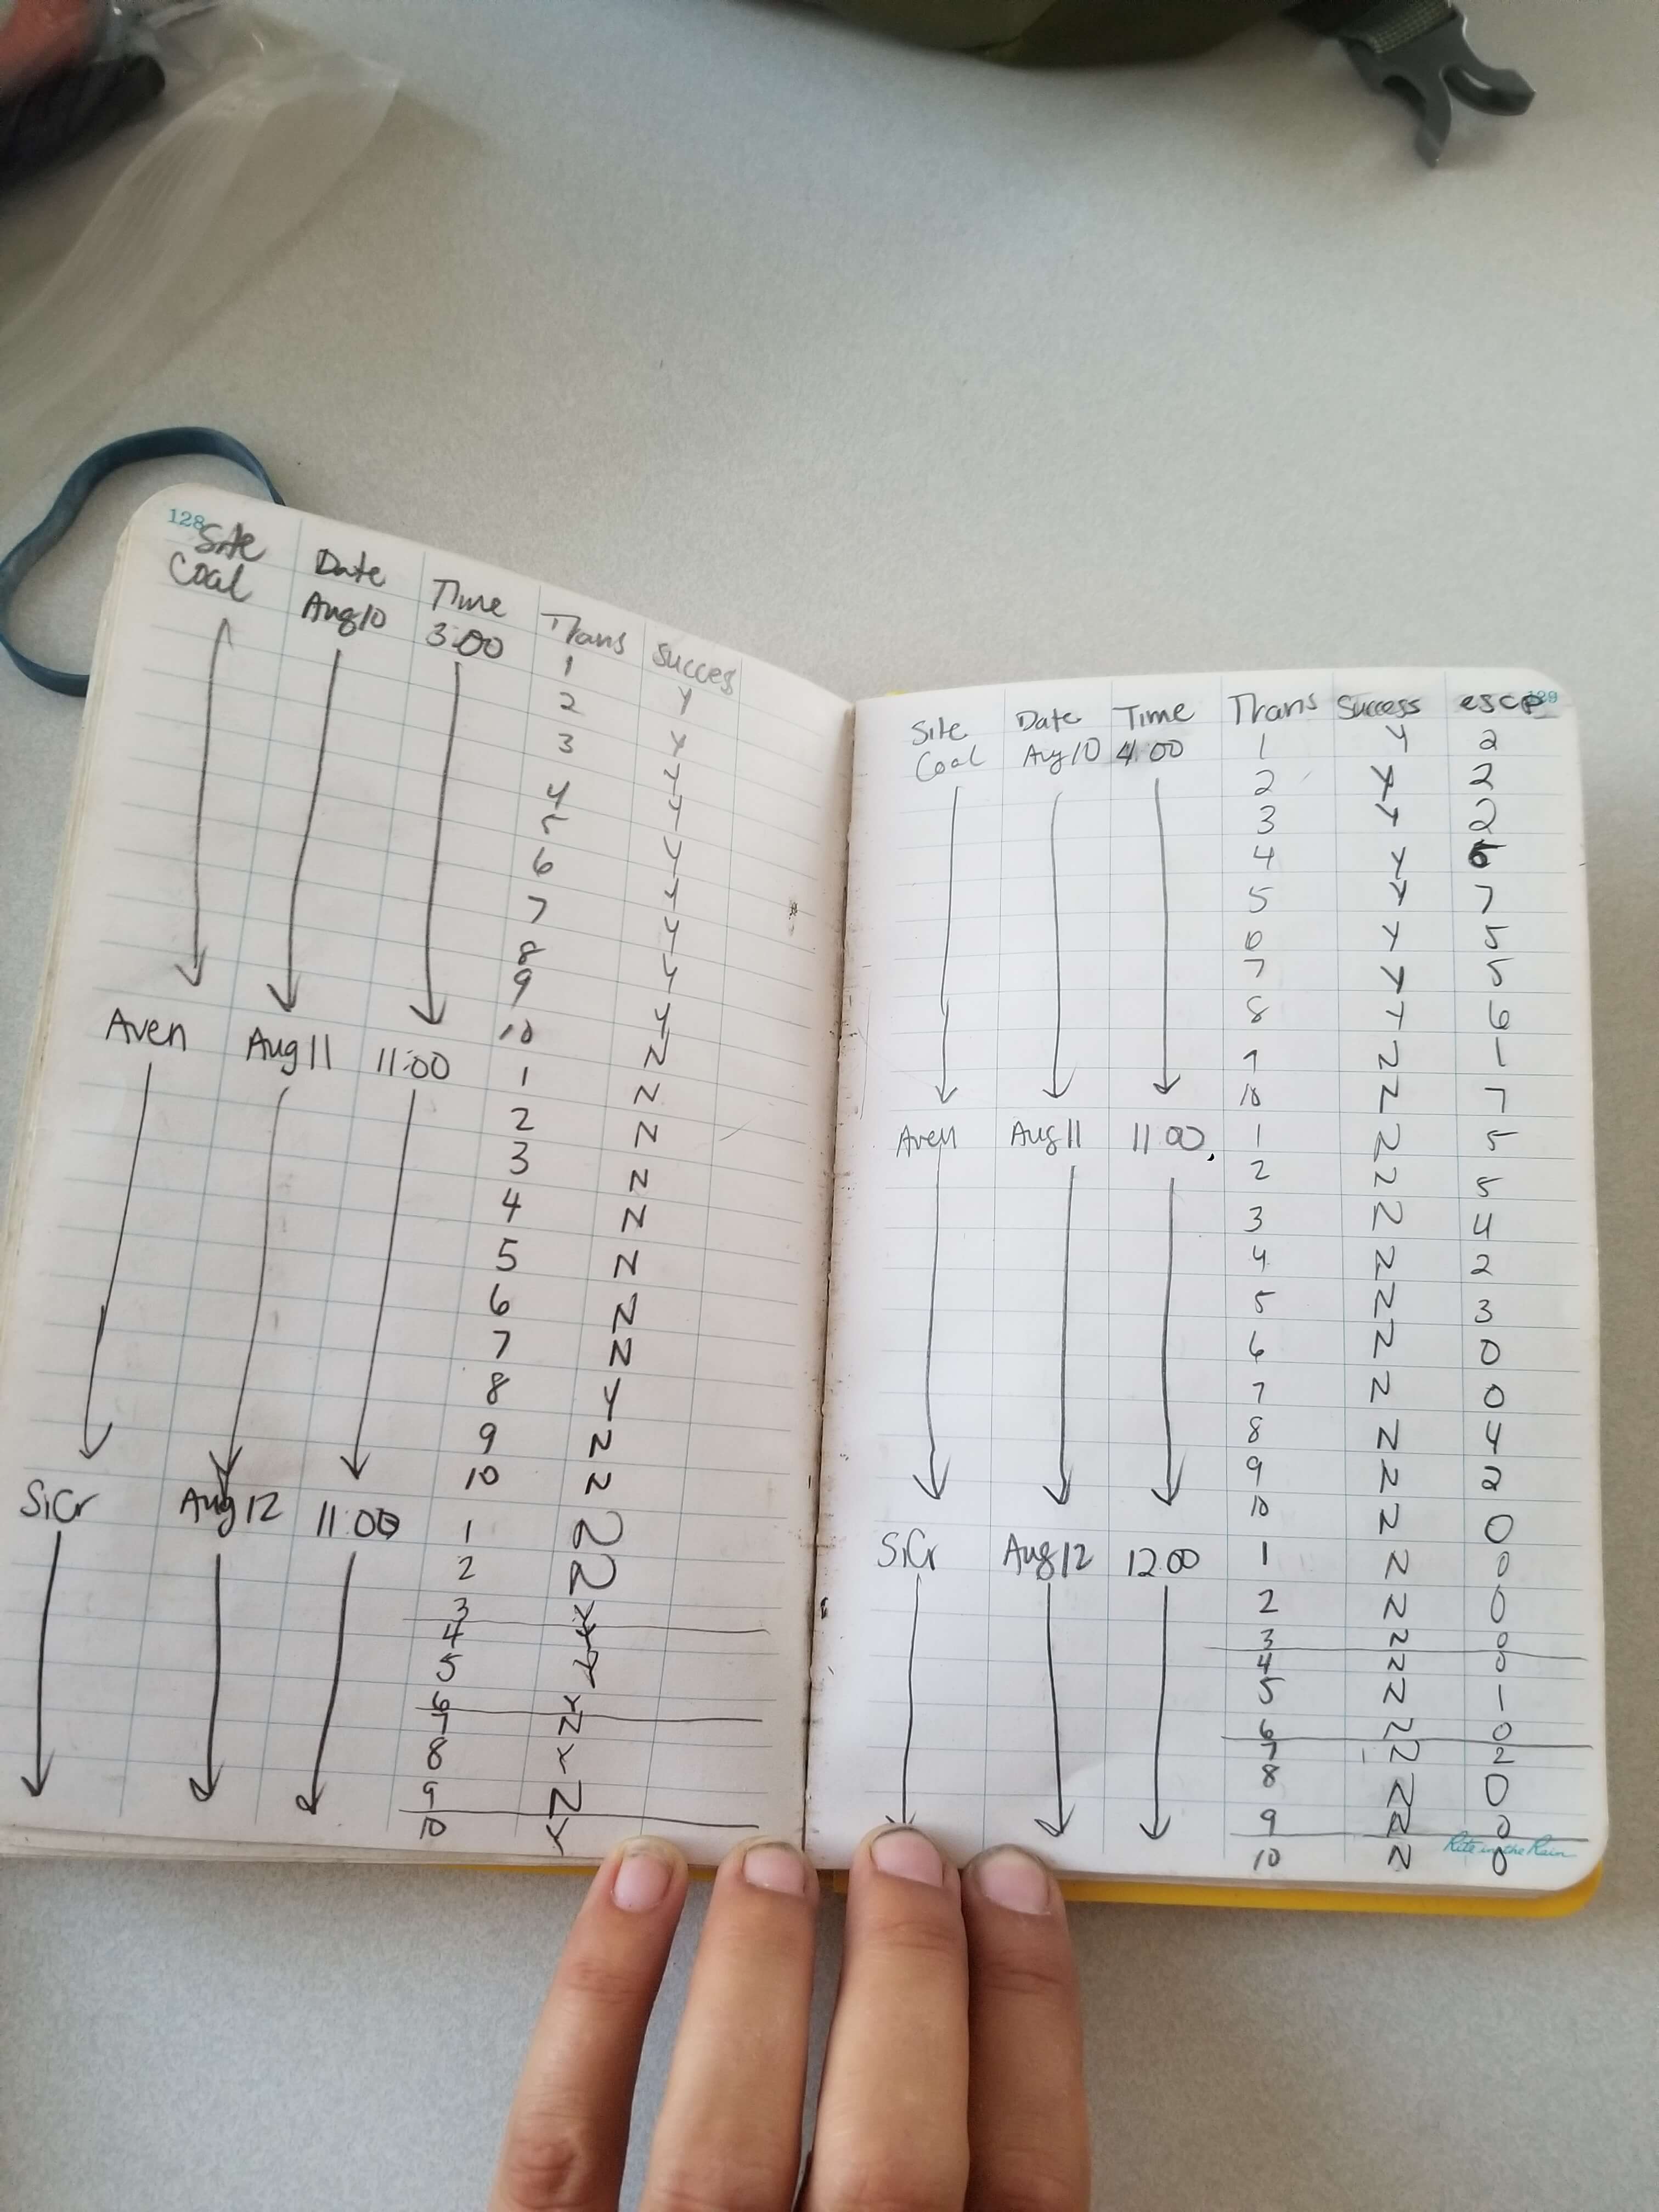 128
Site Date Time Trans Succes
Coal Aug 10 3:00 1 Y
2 Y
3 Y
4 Y
5 Y
6 Y
7 Y
8 Y
9 Y
10 N
Aven Aug 11 11:00 1 N
2 N
3 N
4 N
5 N
6 N
7 N
8 Y
9 N
10 N
SiCr Aug 12 11:00 1 N
2 N
3 Y
4 Y
5 Y
6 Y
7 N
8 Y
9 N
10 Y
129
Site Date Time Trans Success escp
Coal Aug 10 4:00 1 Y 2
2 Y 2
3 Y 2
4 Y
5 Y 7
6 Y 5
7 Y 5
8 Y 6
9 N 1
10 N 7
Aven Aug 11 11:00 1 N 5
2 N 5
3 N 4
4 N 2
5 N 3
6 N 0
7 N 0
8 N 4
9 N 2
10 N 0
SiCr Aug 12 12:00 1 N 0
2 N 0
3 N 0
4 N 0
5 N 1
6 N 0
7 N 2
8 N 0
9 N 0
10 N 0
Rite in the Rain